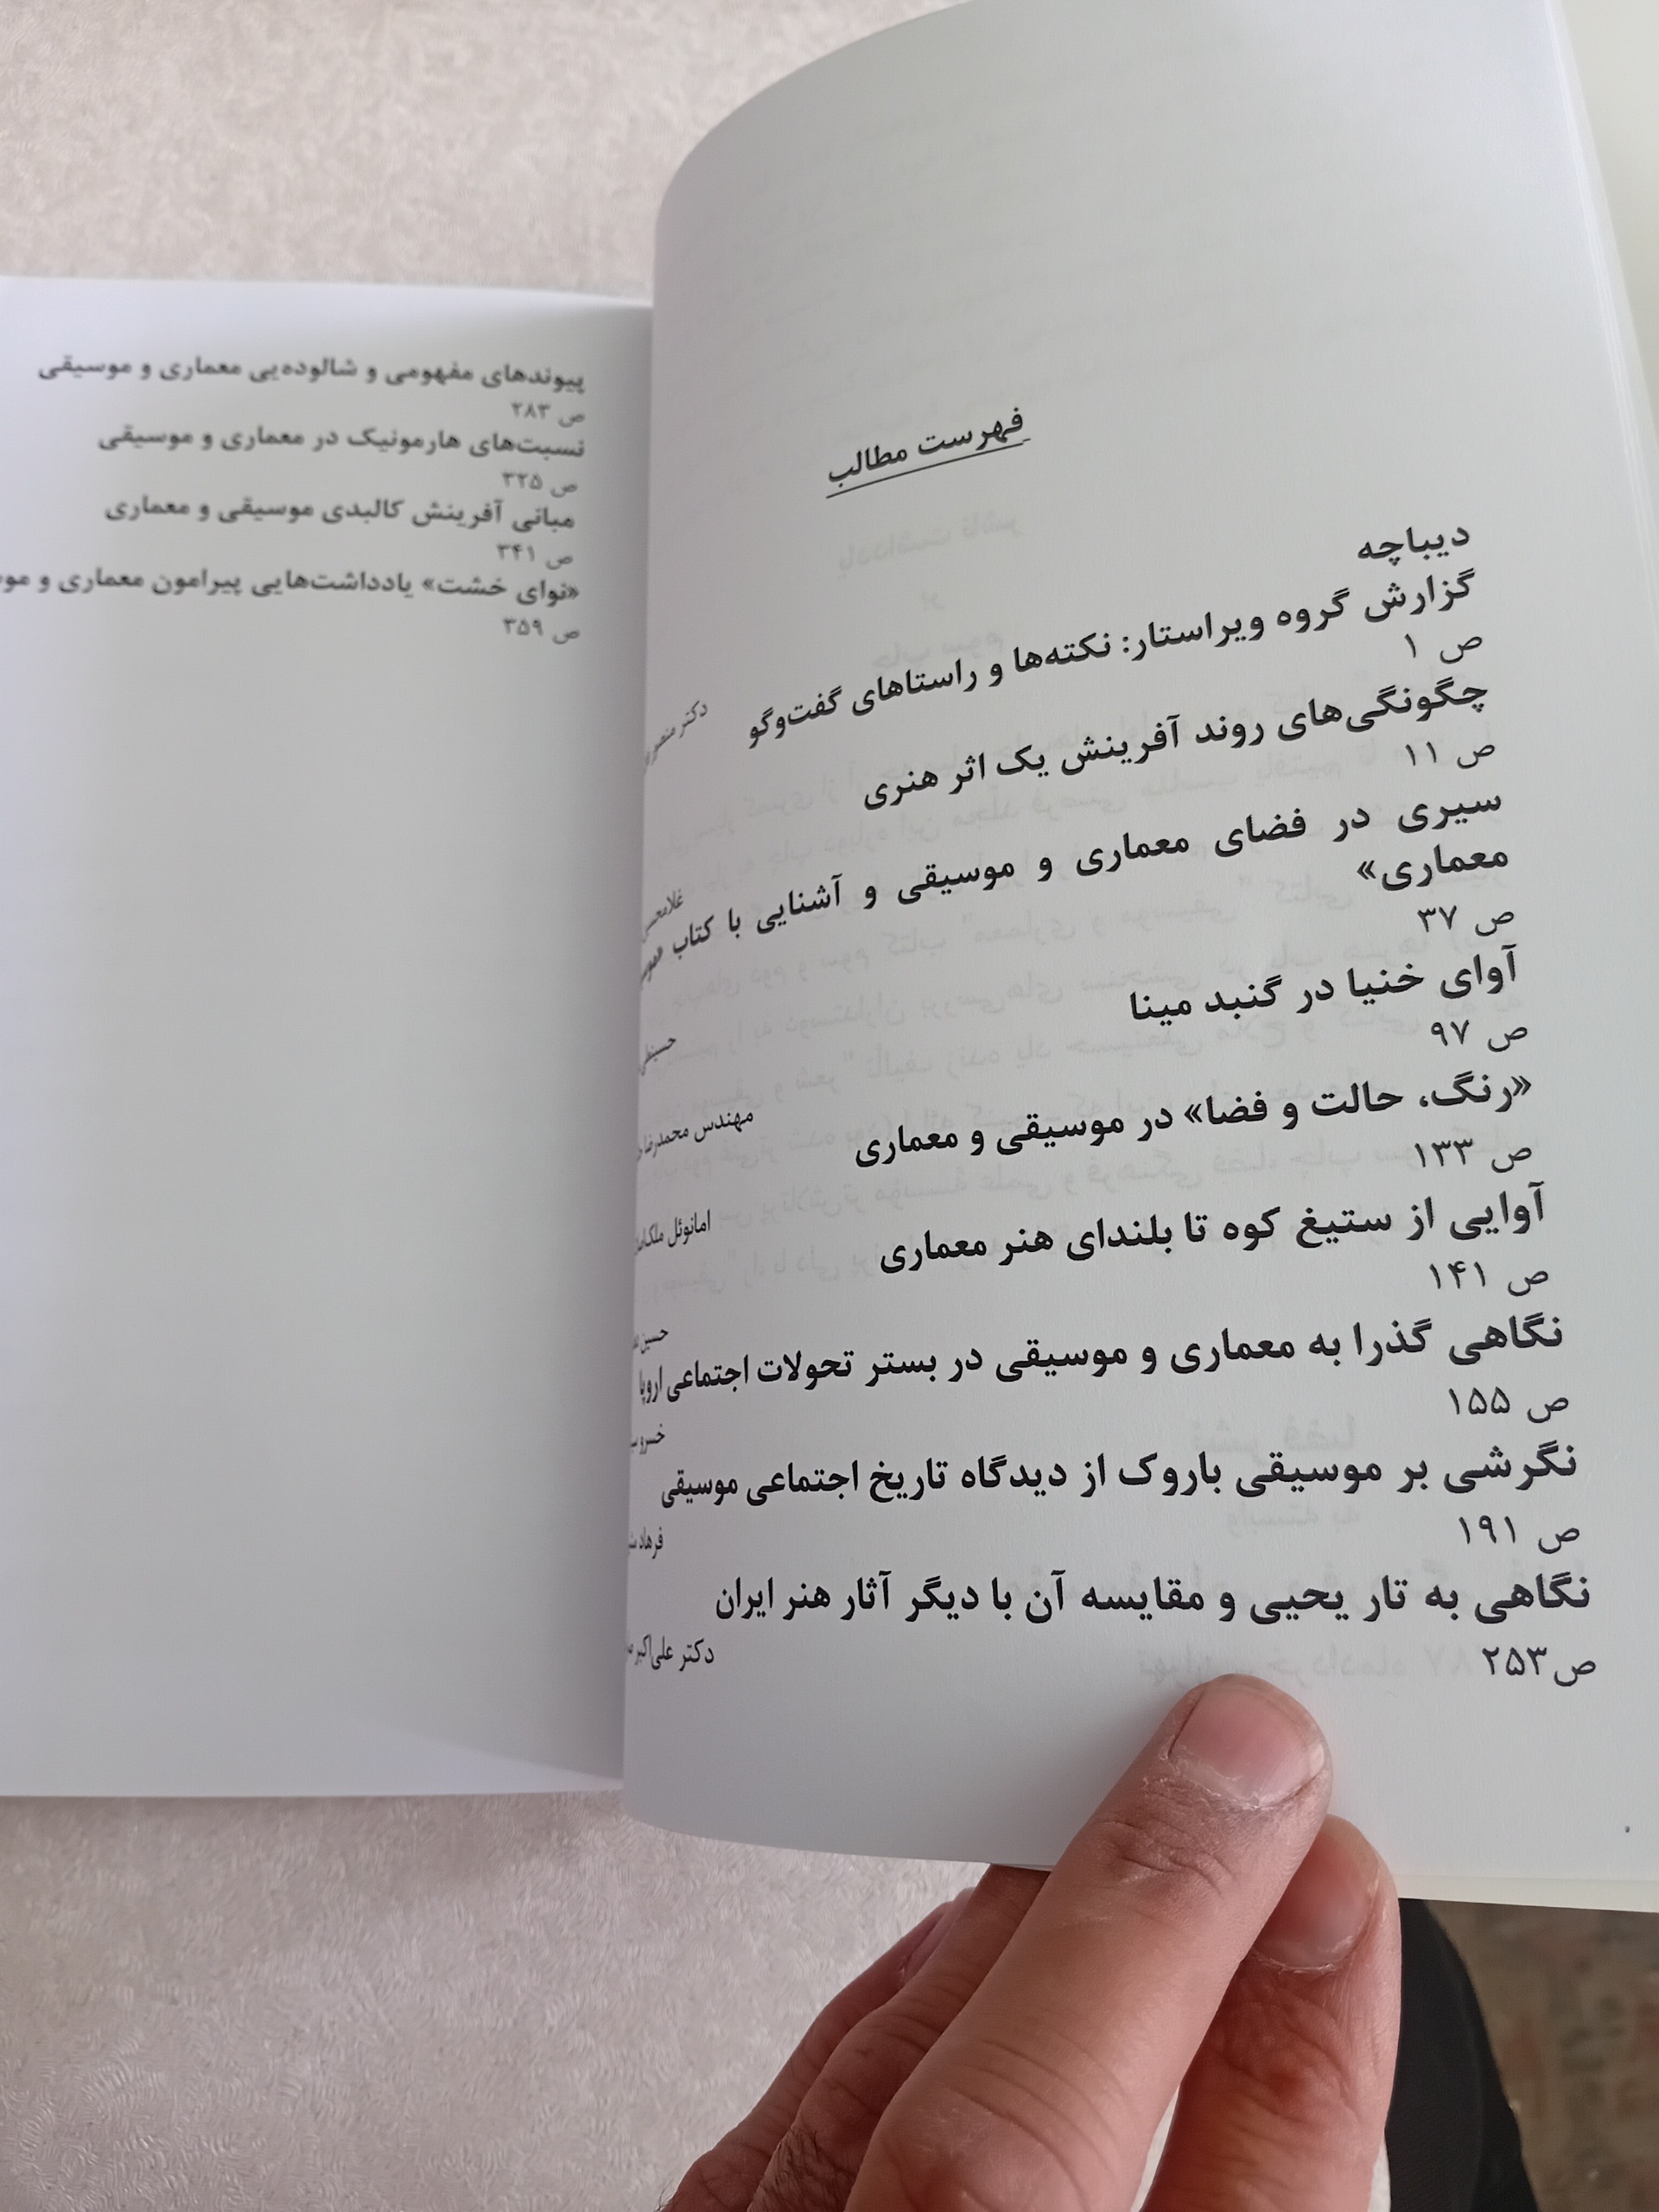 فهرست مطالب
دیباچه
گزارش گروه ویراستار: نکته‌ها و راستاهای گفت‌وگو
ص ۱
دکتر
چگونگی‌های روند آفرینش یک اثر هنری
ص ۱۱
سیری در فضای معماری و موسیقی و آشنایی با کتاب
معماری»
ص ۳۷
آوای خنیا در گنبد مینا
ص ۹۷
«رنگ، حالت و فضا» در موسیقی و معماری
ص ۱۳۳
مهندس محمدرضا
آوایی از ستیغ کوه تا بلندای هنر معماری
ص ۱۴۱
امانوئل
نگاهی گذرا به معماری و موسیقی در بستر تحولات اجتماعی اروپا
ص ۱۵۵
حسین
نگرشی بر موسیقی باروک از دیدگاه تاریخ اجتماعی موسیقی
ص ۱۹۱
خسرو
نگاهی به تار یحیی و مقایسه آن با دیگر آثار هنر ایران
ص ۲۵۳
فرهاد
دکتر علی‌اکبر
پیوندهای مفهومی و شالوده‌یی معماری و موسیقی
ص ۲۸۳
نسبت‌های هارمونیک در معماری و موسیقی
ص ۳۲۵
مبانی آفرینش کالبدی موسیقی و معماری
ص ۳۴۱
«نوای خشت» یادداشت‌هایی پیرامون معماری و
ص ۳۵۹